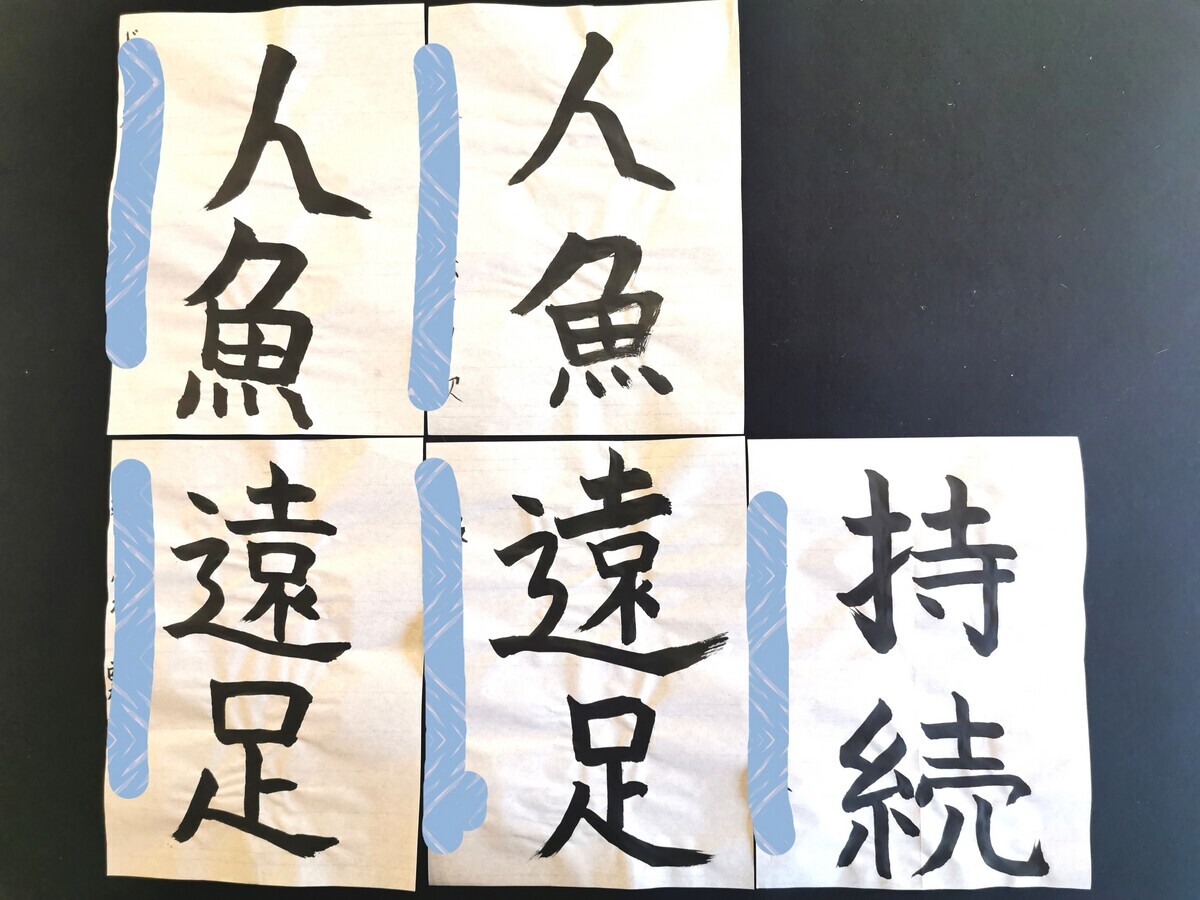 人魚
人魚
遠足
遠足
持続